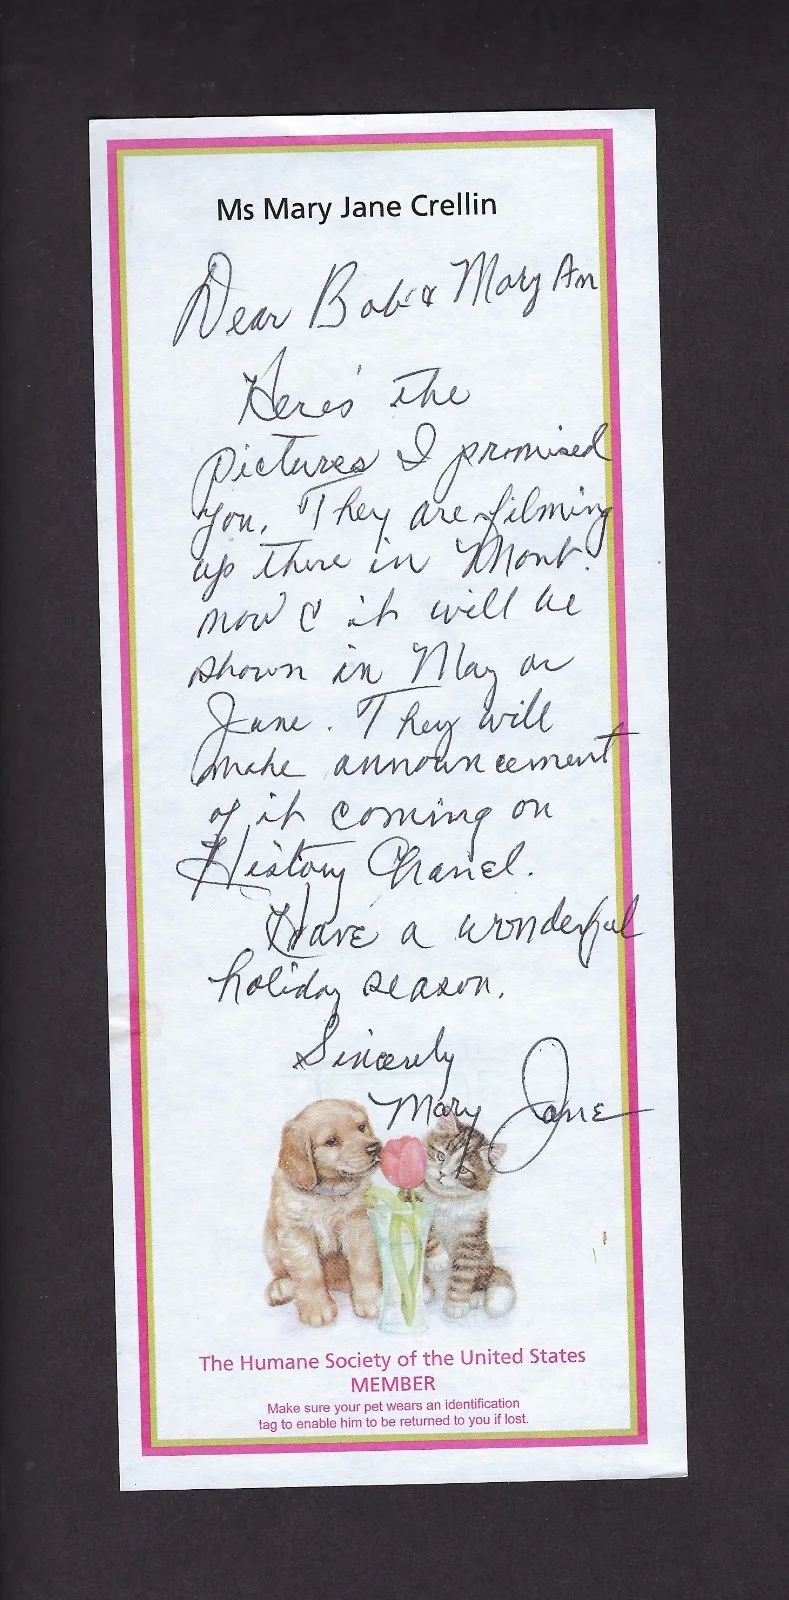 Ms Mary Jane Crellin
Dear Bob & Mary An
Here's the
pictures I promised
you. They are filming
up there in Mont.
now & it will be
shown in May or
June. They will
make announcement
of it coming on
History Chanel.
Have a wonderful
holiday season.
Sincerely
Mary Jane
The Humane Society of the United States
MEMBER
Make sure your pet wears an identification
tag to enable him to be returned to you if lost.